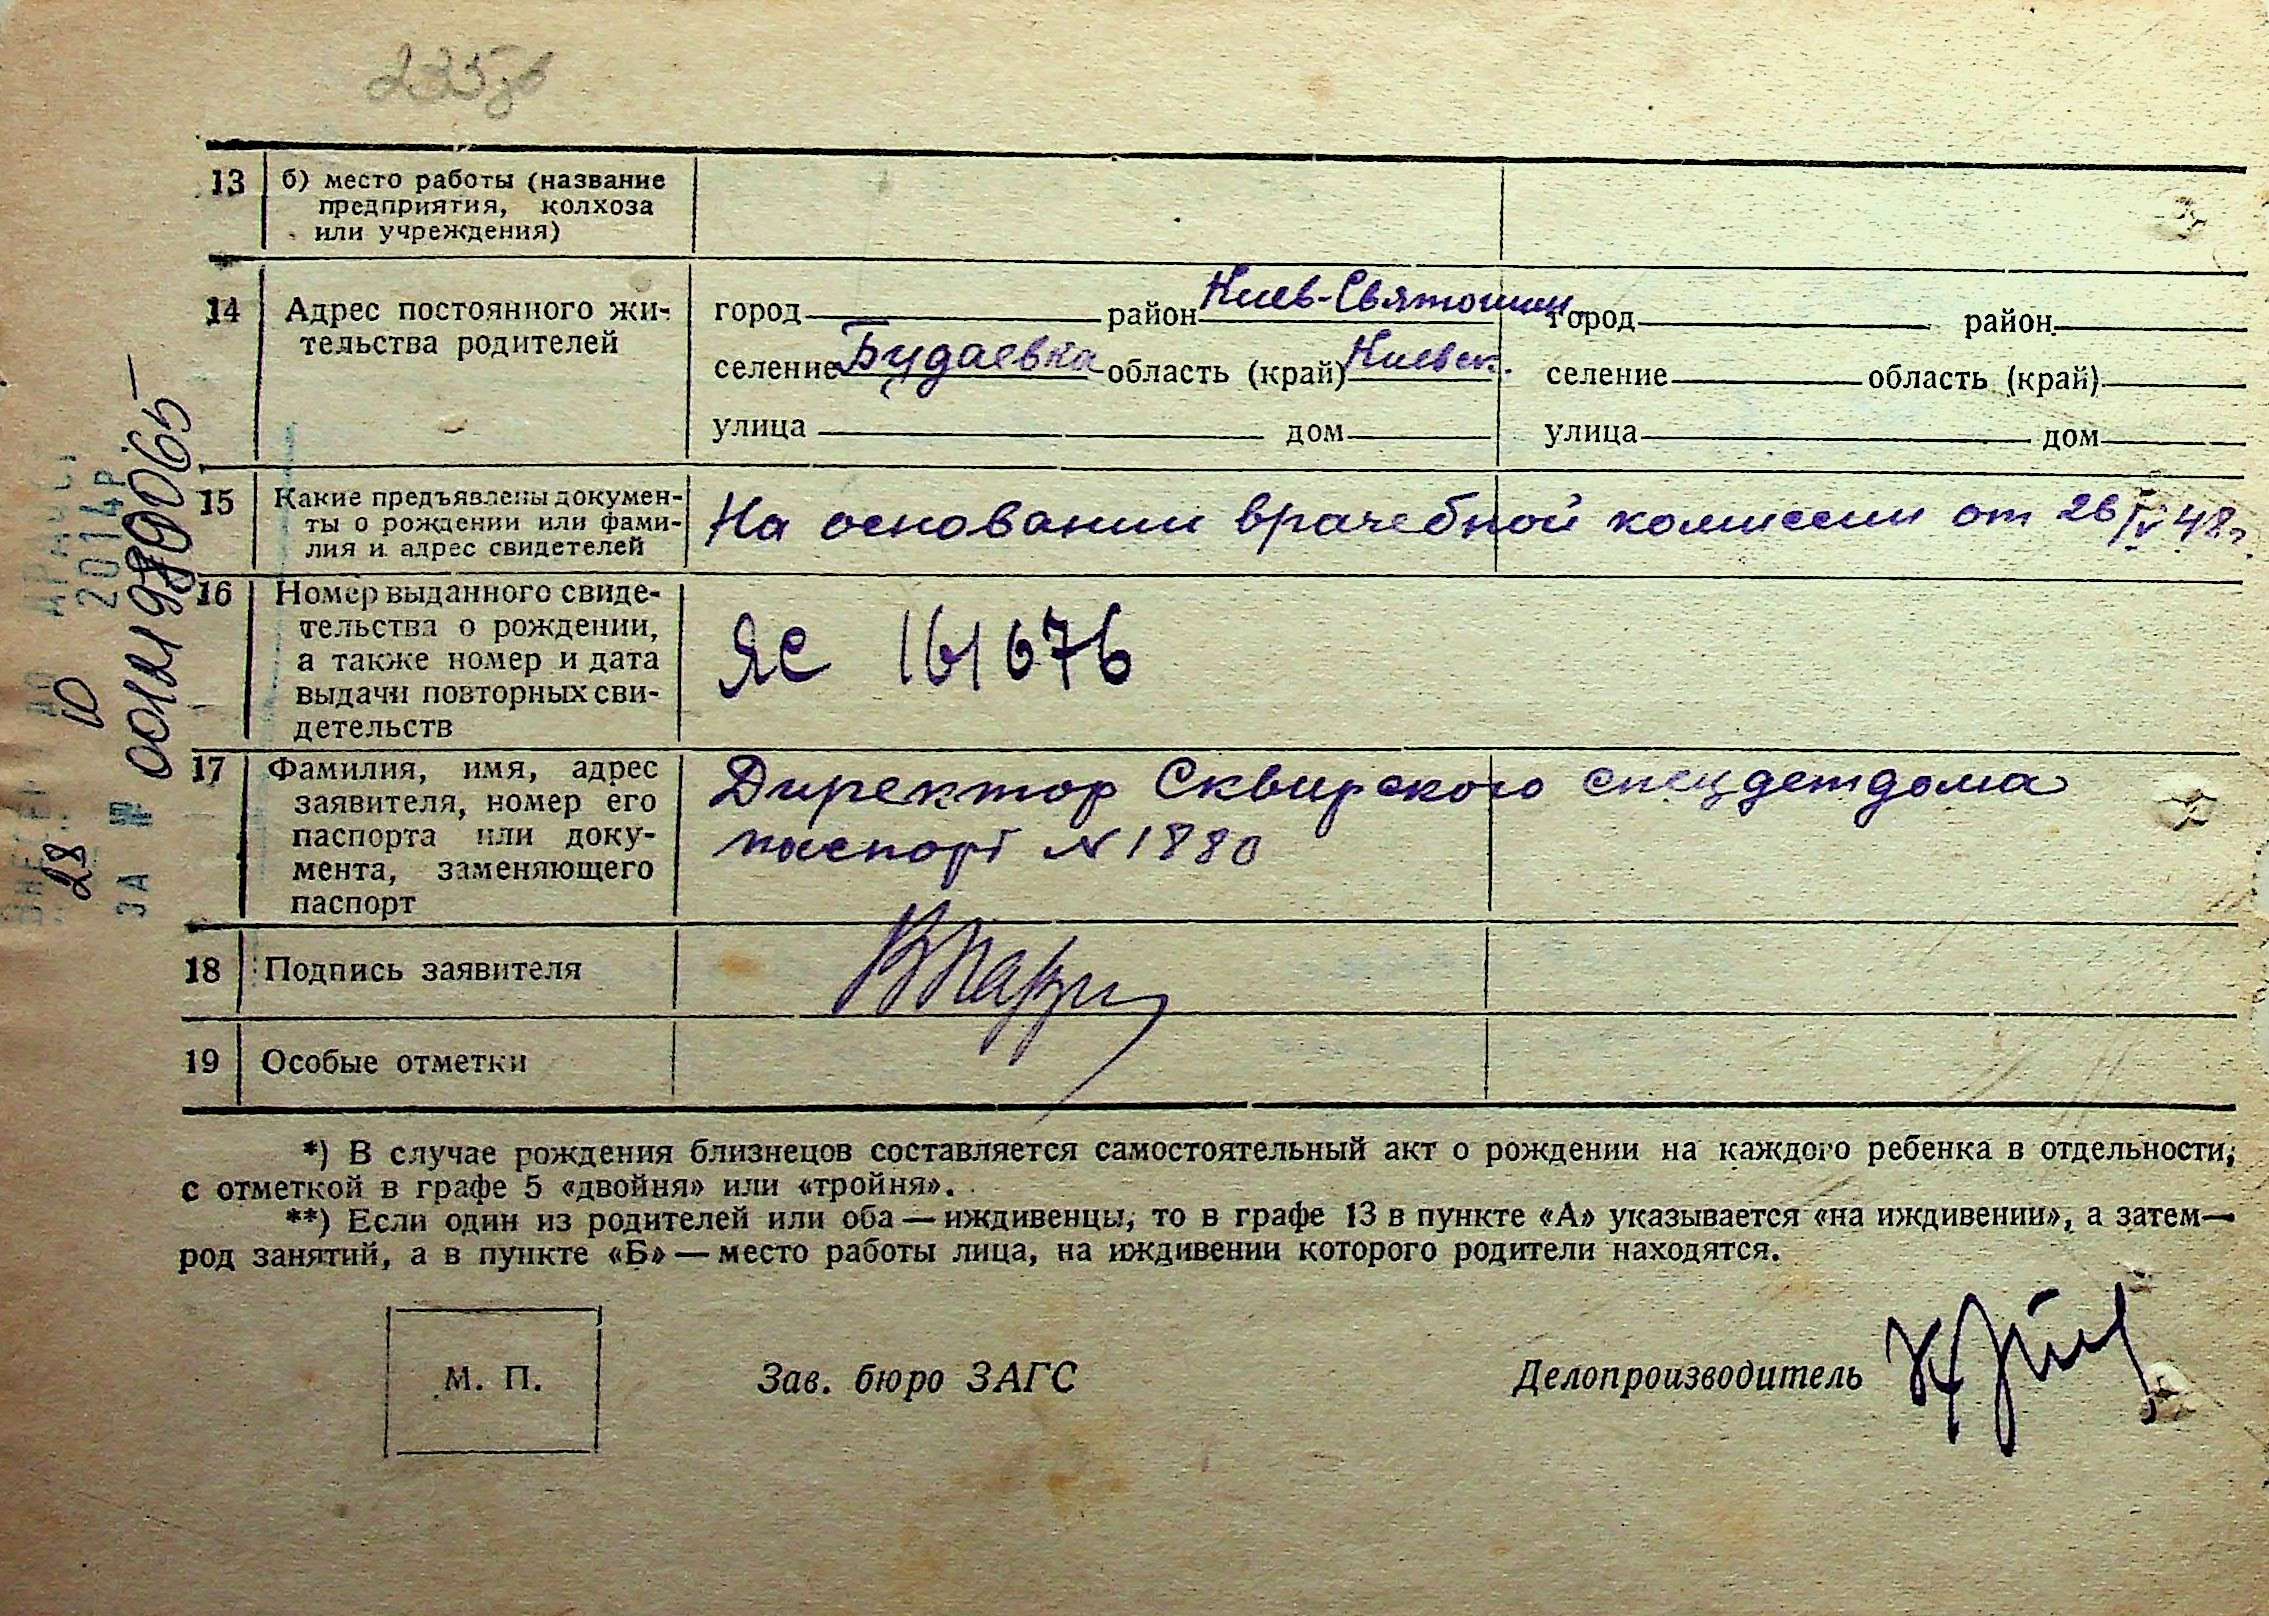 13 б) место работы (название
предприятия, колхоза
или учреждения)
14 Адрес постоянного жи-
тельства родителей
город район Киев-Святошин город район
селение Будаевка область (край) Киевск. селение область (край)
улица дом улица дом
15 Какие предъявлены докумен-
ты о рождении или фами-
лия и адрес свидетелей
На основании врачебной комиссии от 26/IV 48г.
16 Номер выданного свиде-
тельства о рождении,
а также номер и дата
выдачи повторных сви-
детельств
ЯС 161676
17 Фамилия, имя, адрес
заявителя, номер его
паспорта или доку-
мента, заменяющего
паспорт
Директор Сквирского спецдетдома
паспорт N 1880
18 Подпись заявителя
19 Особые отметки
*) В случае рождения близнецов составляется самостоятельный акт о рождении на каждого ребенка в отдельности,
с отметкой в графе 5 «двойня» или «тройня».
**) Если один из родителей или оба — иждивенцы, то в графе 13 в пункте «А» указывается «на иждивении», а затем —
род занятий, а в пункте «Б» — место работы лица, на иждивении которого родители находятся.
М. П. Зав. бюро ЗАГС Делопроизводитель
28 10 2014р.
ЗА №